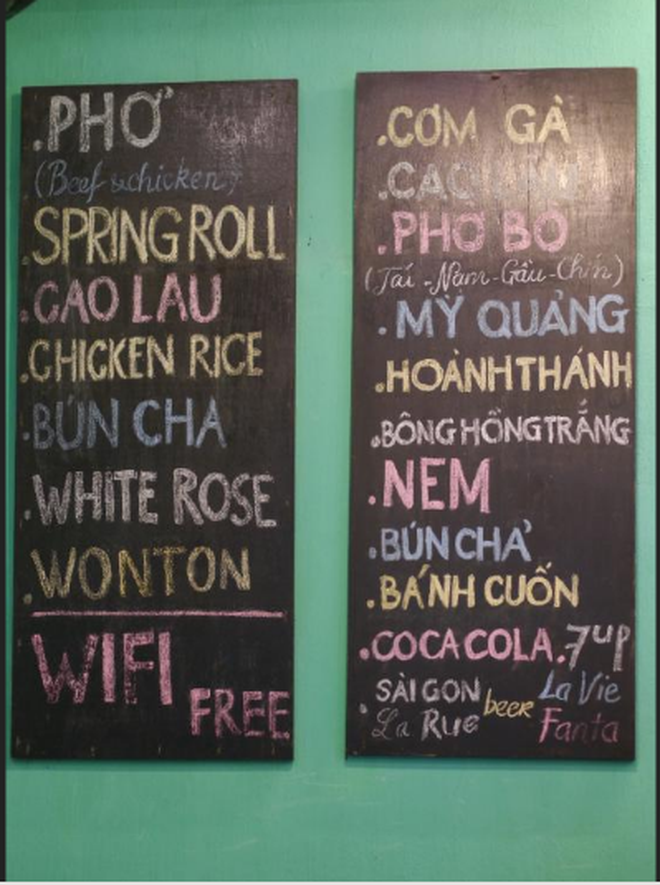 .PHỞ
(Beef & chicken)
.SPRING ROLL
.CAO LAU
.CHICKEN RICE
.BÚN CHA
.WHITE ROSE
.WONTON
WIFI
FREE
.CƠM GÀ
.PHỞ BO
(Tái-Nam-Gầu-Chín)
.MỲ QUẢNG
.HOÀNH THÁNH
.BÔNG HỒNG TRẮNG
.NEM
.BÚN CHẢ
.BÁNH CUỐN
.COCA COLA.7up
SÀI GON beer La Vie
.La Rue Fanta